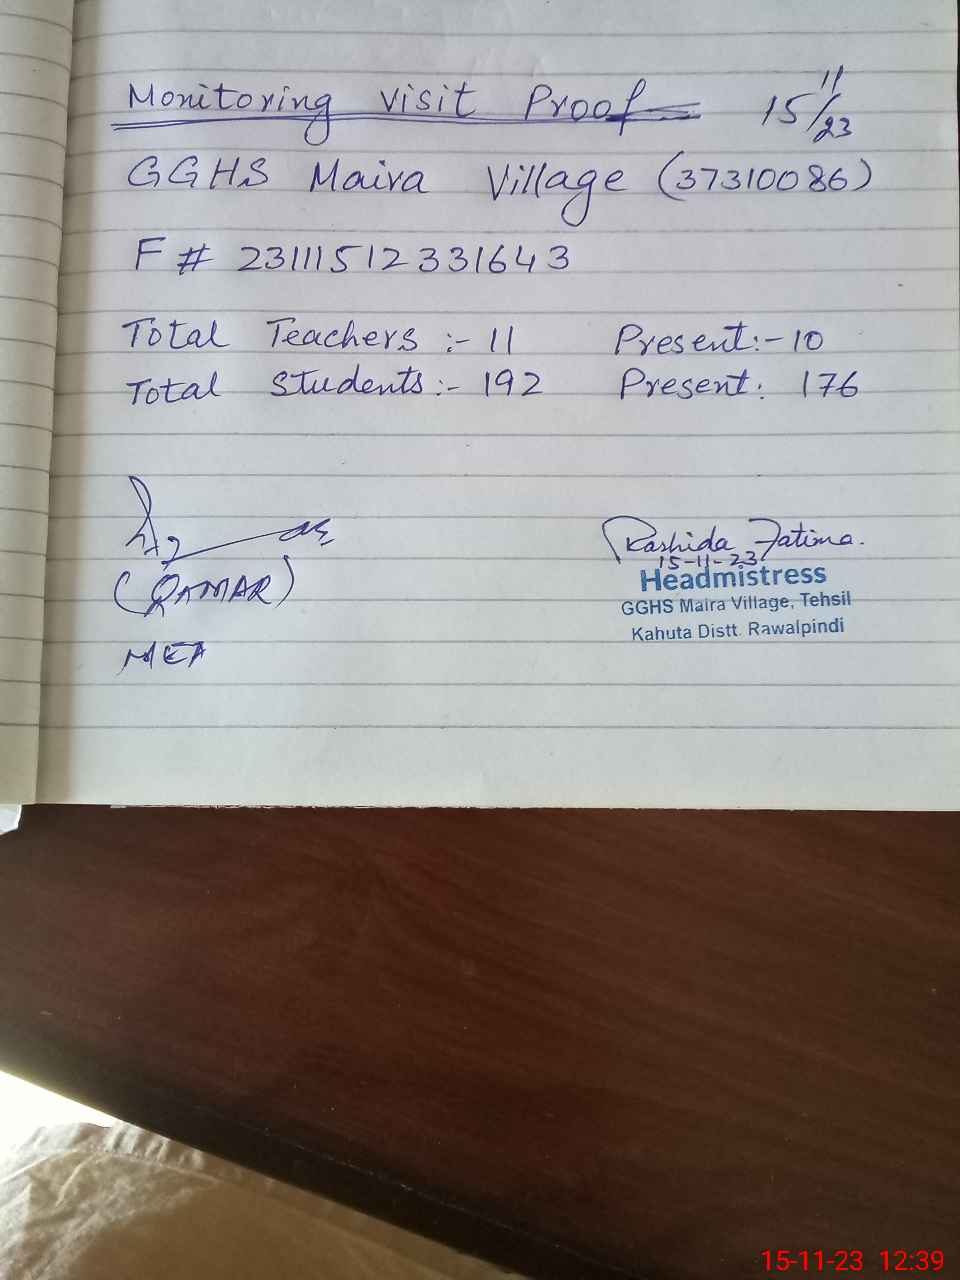 Monitoring Visit Proof 15/11/23
GGHS Maira Village (37310086)
F# 23111512331643
Total Teachers :- 11 Present:- 10
Total Students:- 192 Present: 176
Rashida Fatima.
15-11-23
(QAMAR)
Headmistress
GGHS Maira Village, Tehsil
Kahuta Distt. Rawalpindi
MEA
15-11-23 12:39